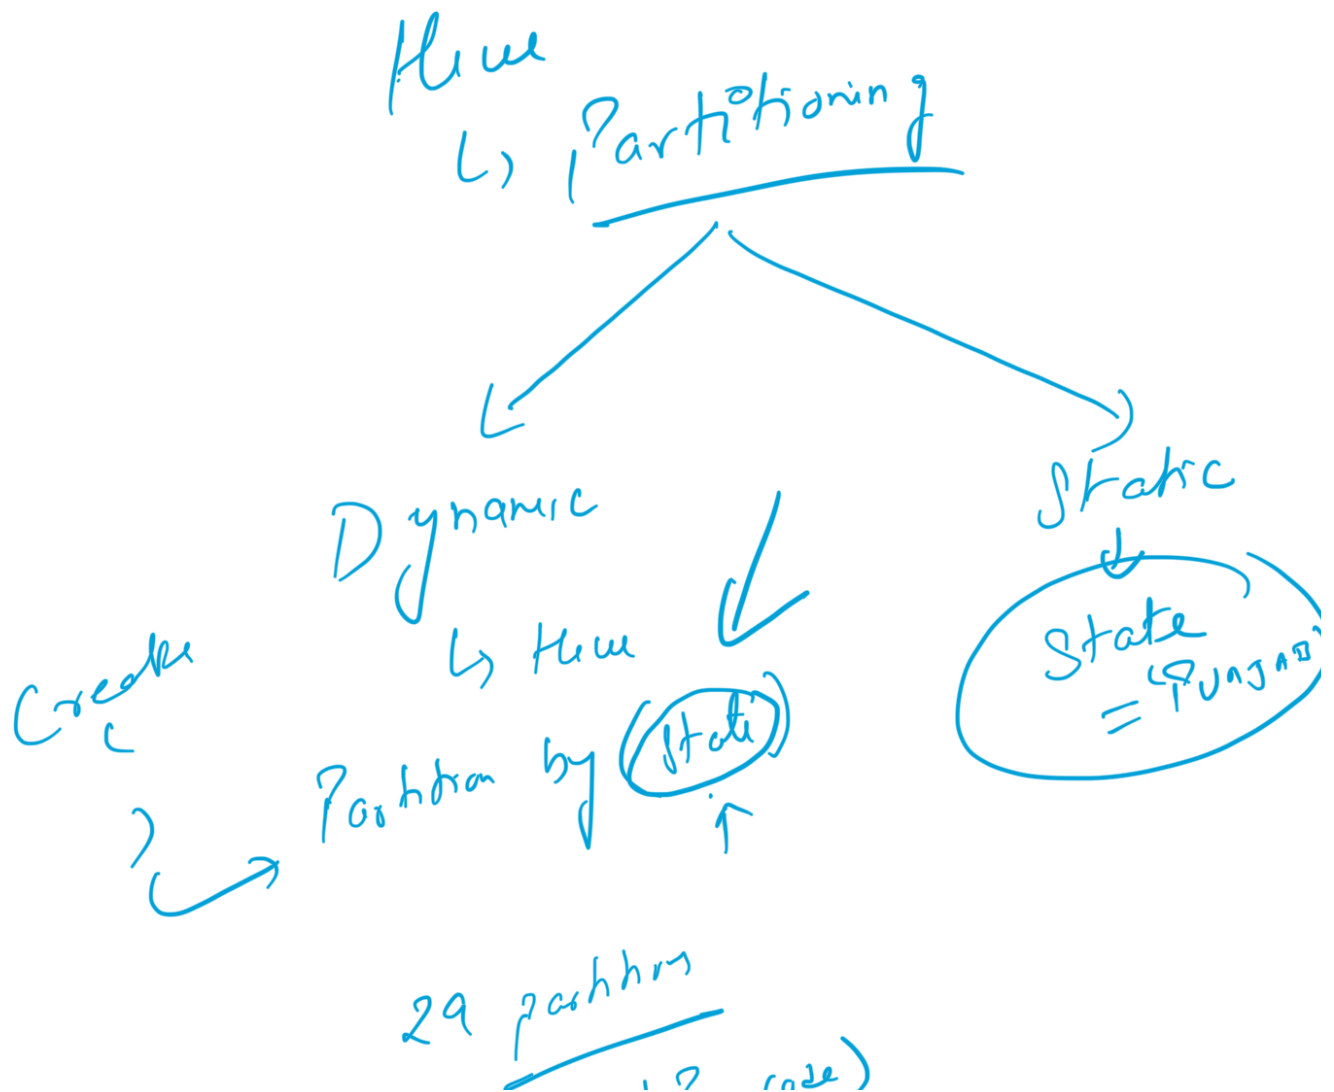 Hive
↳ Partitioning
Dynamic
Static
↳ Hive
State
= 'PUNJAB'
Create
(
)
Partition by (State)
29 partitions
code)